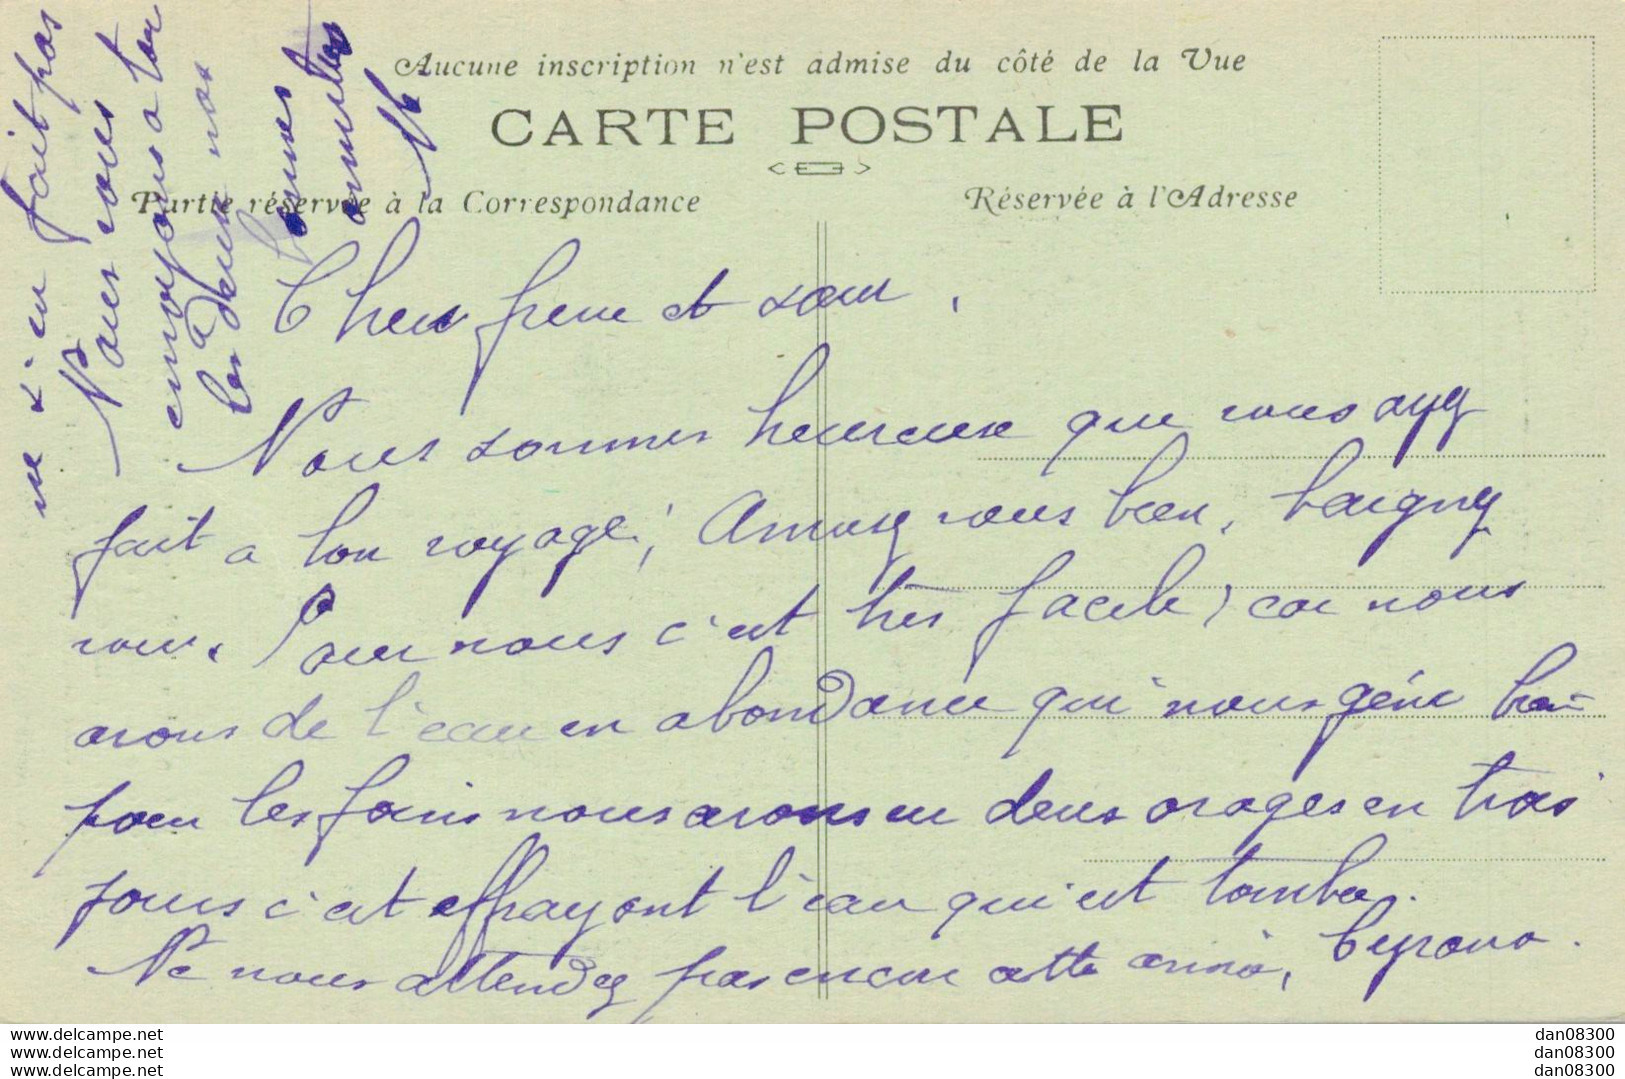 Aucune inscription n'est admise du côté de la Vue
CARTE POSTALE
Partie réservée à la Correspondance
Réservée à l'Adresse
Cher frere et sœur,
Nous sommes heureux que vous ayez
fait a bon voyage; Amusez vous bien, baignez
vous. Pour nous c'est très facile, car nous
avons de l'eau en abondance qui nous gène
pour les foins nous avons eu deux orages en trois
jours c'est effrayant l'eau qui est tombée.
Ne nous attendez pas encore cette année,
ne s'en fait pas
Nous vous
envoyons a tous
les deux nos
bonnes
amities
www.delcampe.net
www.delcampe.net
www.delcampe.net
dan08300
dan08300
dan08300